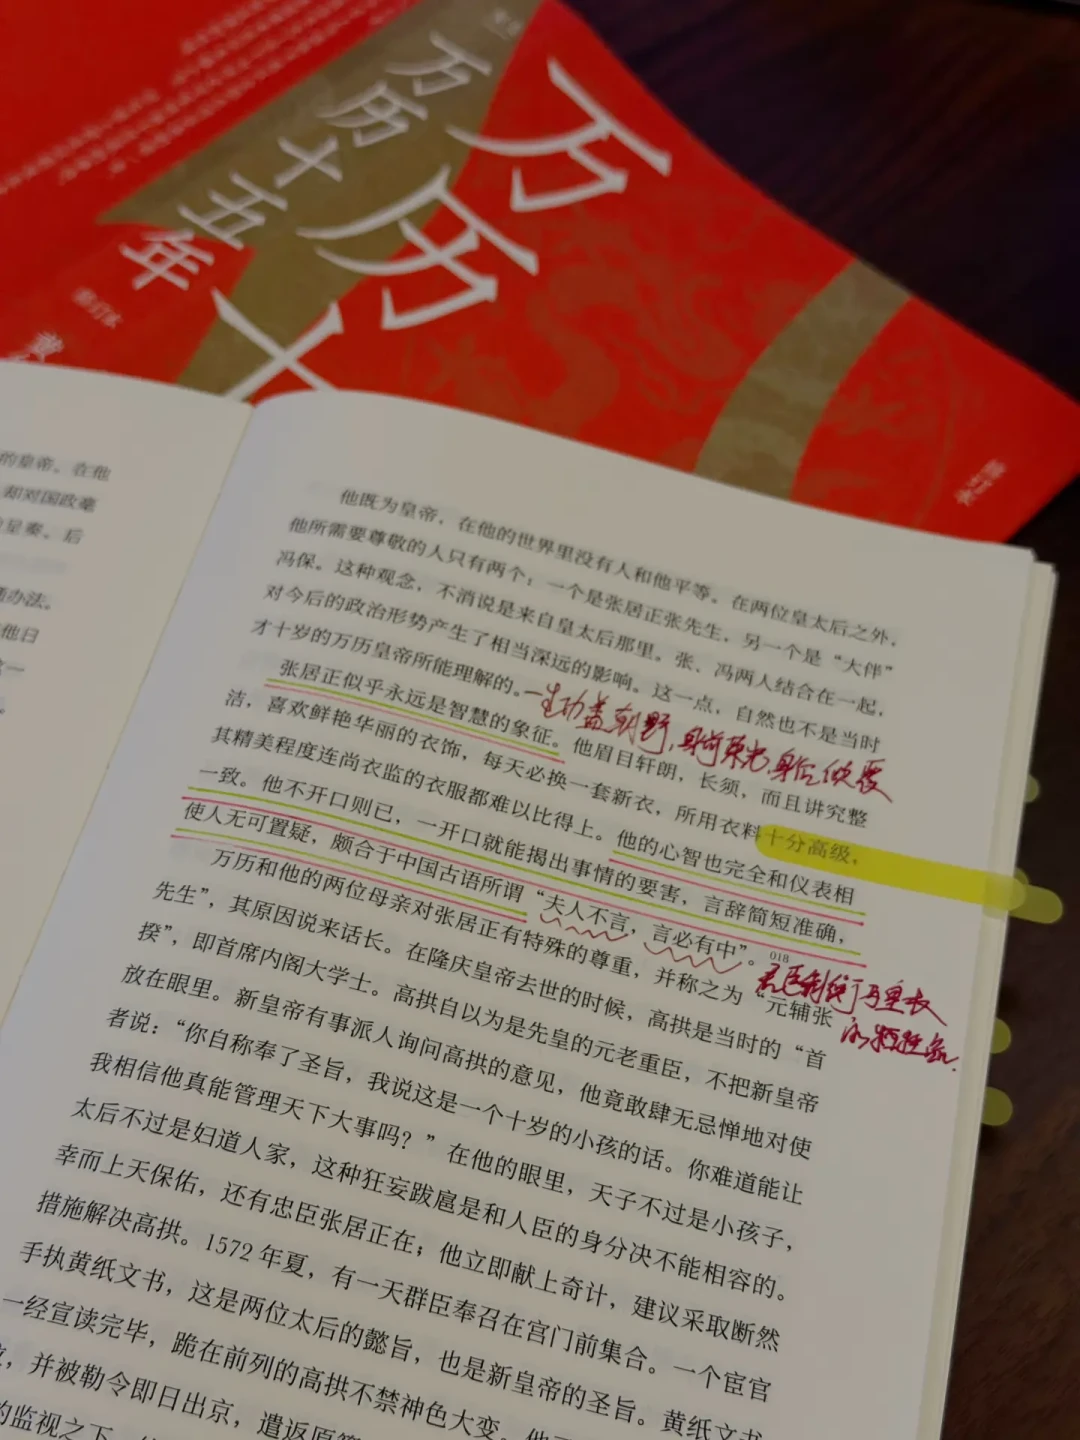 万历十
万历十五年
修订本
黄
修订本
的皇帝。在他
却对国政毫
呈奏。后
办法。
他日
一
他既为皇帝，在他的世界里没有人和他平等。在两位皇太后之外，
他所需要尊敬的人只有两个：一个是张居正张先生，另一个是“大伴”
冯保。这种观念，不消说是来自皇太后那里。张、冯两人结合在一起，
对今后的政治形势产生了相当深远的影响。这一点，自然也不是当时
才十岁的万历皇帝所能理解的。
一生功盖朝野，身前荣光，身后
张居正似乎永远是智慧的象征。他眉目轩朗，长须，而且讲究整
洁，喜欢鲜艳华丽的衣饰，每天必换一套新衣，所用衣料十分高级，
其精美程度连尚衣监的衣服都难以比得上。他的心智也完全和仪表相
一致。他不开口则已，一开口就能揭出事情的要害，言辞简短准确，
使人无可置疑，颇合于中国古语所谓“夫人不言，言必有中”。
018
万历和他的两位母亲对张居正有特殊的尊重，并称之为“元辅张
先生”，其原因说来话长。在隆庆皇帝去世的时候，高拱是当时的“首
揆”，即首席内阁大学士。高拱自以为是先皇的元老重臣，不把新皇帝
放在眼里。新皇帝有事派人询问高拱的意见，他竟敢肆无忌惮地对使
者说：“你自称奉了圣旨，我说这是一个十岁的小孩的话。你难道能让
我相信他真能管理天下大事吗？”在他的眼里，天子不过是小孩子，
太后不过是妇道人家，这种狂妄跋扈是和人臣的身分决不能相容的。
幸而上天保佑，还有忠臣张居正在；他立即献上奇计，建议采取断然
措施解决高拱。1572年夏，有一天群臣奉召在宫门前集合。一个宦官
手执黄纸文书，这是两位太后的懿旨，也是新皇帝的圣旨。黄纸文书
一经宣读完毕，跪在前列的高拱不禁神色大变。他
，并被勒令即日出京，遣返原
的监视之下